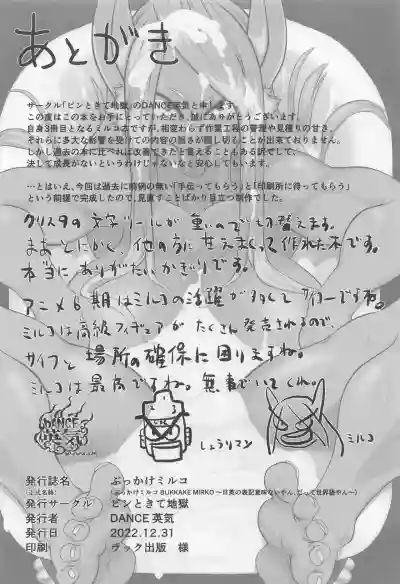 あとがき
サークル「ピンときて地獄」のDANCE英気と申します。
この度はこの本をお手にとっていただき、誠にありがとうございます。
自身3冊目となるミルコ本ですが、相変わらず作業工程の管理や見積りの甘さ、
それらに多大な影響を受けての内容の弱さが隠し切ることが出来ておりません。
しかし過去の本に比べれば改善できたと言えることもある訳でして、
決して成長がないというわけじゃないなと安心してもいます。
…とはいえ、今回は過去に前例の無い「手伝ってもらう」と「印刷所に待ってもらう」
という前提で完成したので、見直すことばかり目立つ制作でした。
クリスタの文字ツールが重いので切り替えます。
まあとにかく 他の方に甘えまくって作れた本です。
本当にありがたいかぎりです。
アニメ6期はミルコの活躍が多くてサイコーですね。
ミルコは高級フィギュアがたくさん発売されるので、
サイフと場所の確保に困りますね。
ミルコは最高ですね。無事でいてくれ。
DANCE
英気
しょうりマン
ミルコ
発行誌名 ぶっかけミルコ
(正式名称) (ぶっかけミルコ BUKKAKE MIRKO ～日英の表記意味ないやん、だって世界語やん～)
発行サークル ピンときて地獄
発行者 DANCE英気
発行日 2022.12.31
印刷 ラック出版 様